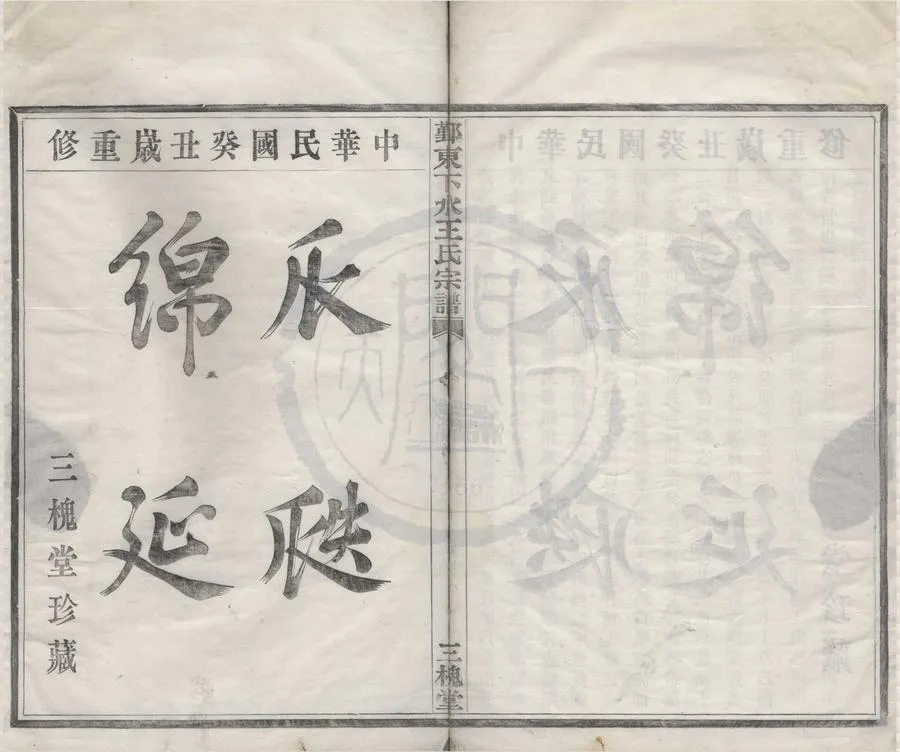 中華民國癸丑歲重修
瓜瓞
綿延
三槐堂珍藏
鄞東下水王氏宗譜
三槐堂